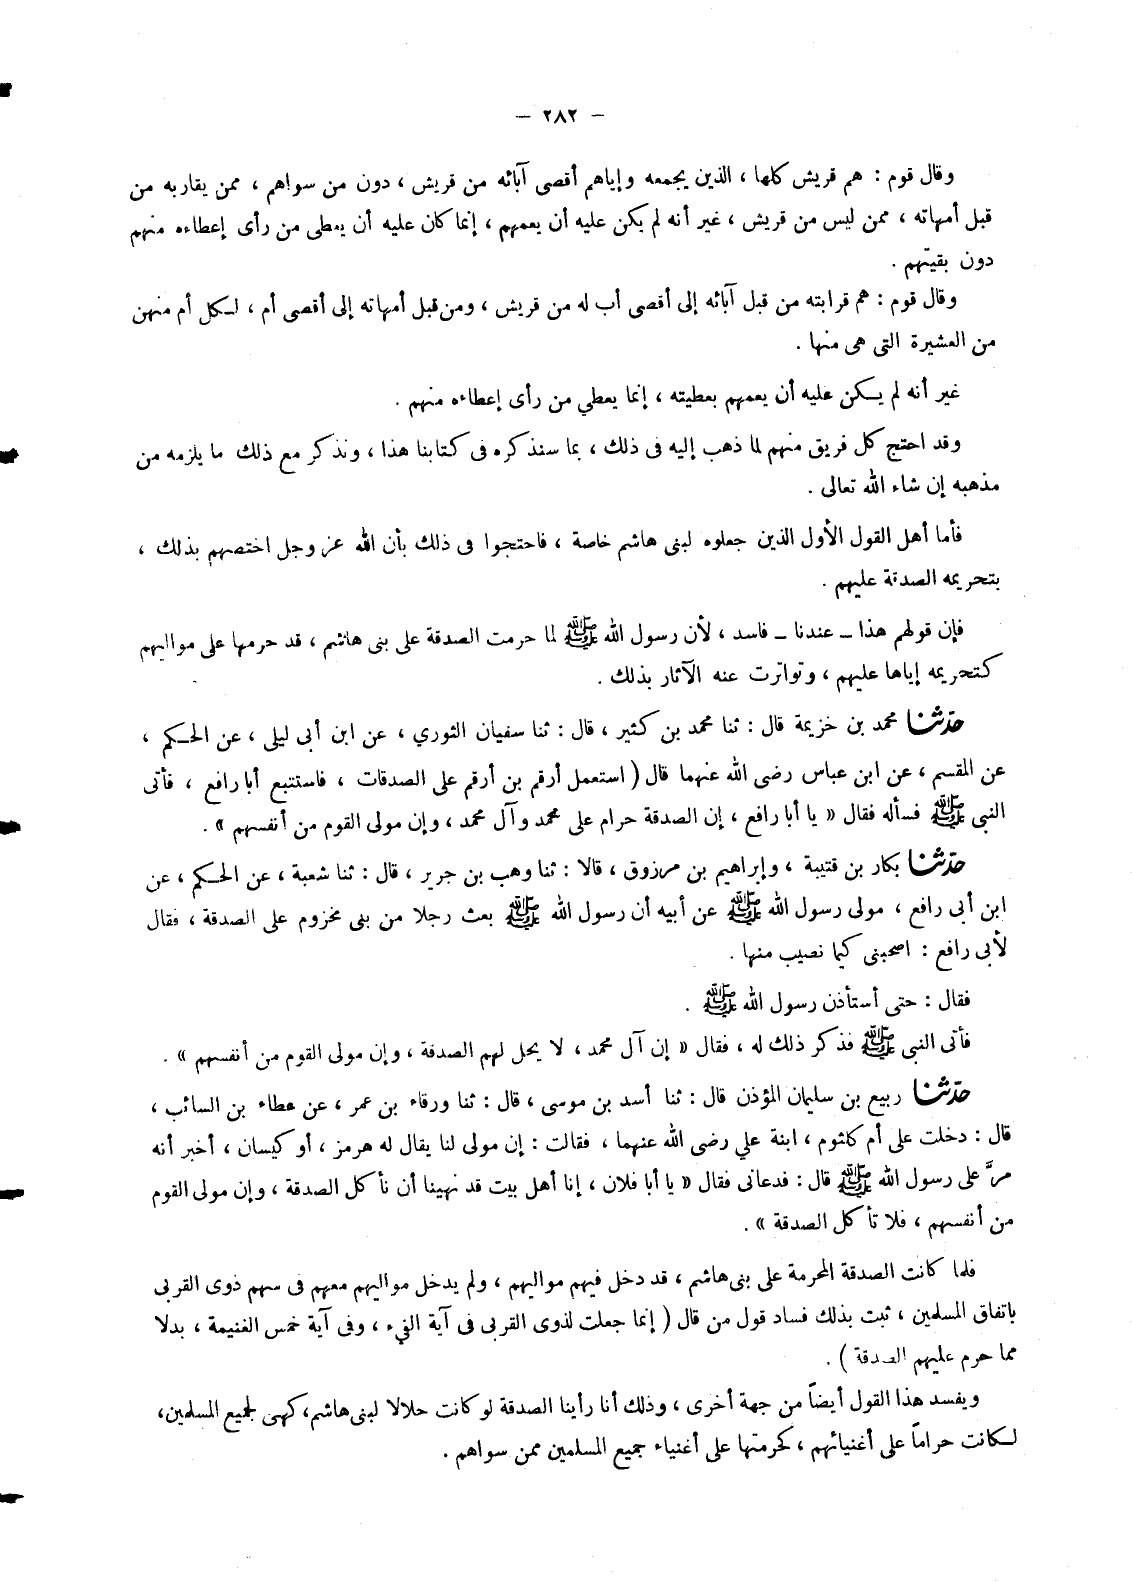 — ٢٨٢ —
وقال قوم : هم قريش كلها ، الذين يجمعه وإياهم أقصى آبائه من قريش ، دون من سواهم ، ممن يقاربه من
قبل أمهاته ، ممن ليس من قريش ، غير أنه لم يكن عليه أن يعمهم ، إنما كان عليه أن يعطى من رأى إعطاءه منهم
دون بقيتهم .
وقال قوم : هم قرابته من قبل آبائه إلى أقصى أب له من قريش ، ومن قبل أمهاته إلى أقصى أم ، لكل أم منهن
من العشيرة التى هى منها .
غير أنه لم يكن عليه أن يعمهم بعطيته ، إنما يعطي من رأى إعطاءه منهم .
وقد احتج كل فريق منهم لما ذهب إليه فى ذلك ، بما سنذكره فى كتابنا هذا ، ونذكر مع ذلك ما يلزمه من
مذهبه إن شاء الله تعالى .
فأما أهل القول الأول الذين جعلوه لبنى هاشم خاصة ، فاحتجوا فى ذلك بأن الله عز وجل اختصهم بذلك ،
بتحريمه الصدقة عليهم .
فإن قولهم هذا ــ عندنا ــ فاسد ، لأن رسول الله ﷺ لما حرمت الصدقة على بنى هاشم ، قد حرمها على مواليهم
كتحريمه إياها عليهم ، وتواترت عنه الآثار بذلك .
حدّثنا محمد بن خزيمة قال : ثنا محمد بن كثير ، قال : ثنا سفيان الثوري ، عن ابن أبى ليلى ، عن الحكم ،
عن المقسم ، عن ابن عباس رضى الله عنهما قال ( استعمل أرقم بن أرقم على الصدقات ، فاستتبع أبا رافع ، فأتى
النبى ﷺ فسأله فقال « يا أبا رافع ، إن الصدقة حرام على محمد وآل محمد ، وإن مولى القوم من أنفسهم » .
حدّثنا بكار بن قتيبة ، وإبراهيم بن مرزوق ، قالا : ثنا وهب بن جرير ، قال : ثنا شعبة ، عن الحكم ، عن
ابن أبى رافع ، مولى رسول الله ﷺ عن أبيه أن رسول الله ﷺ بعث رجلا من بنى مخزوم على الصدقة ، فقال
لأبى رافع : اصحبنى كيما نصيب منها .
فقال : حتى أستأذن رسول الله ﷺ .
فأتى النبى ﷺ فذكر ذلك له ، فقال « إن آل محمد ، لا يحل لهم الصدقة ، وإن مولى القوم من أنفسهم » .
حدّثنا ربيع بن سليمان المؤذن قال : ثنا أسد بن موسى ، قال : ثنا ورقاء بن عمر ، عن عطاء بن السائب ،
قال : دخلت على أم كلثوم ، ابنة علي رضى الله عنهما ، فقالت : إن مولى لنا يقال له هرمز ، أو كيسان ، أخبر أنه
مرَّ على رسول الله ﷺ قال : فدعانى فقال « يا أبا فلان ، إنا أهل بيت قد نهينا أن نأكل الصدقة ، وإن مولى القوم
من أنفسهم ، فلا تأكل الصدقة » .
فلما كانت الصدقة المحرمة على بنى هاشم ، قد دخل فيهم مواليهم ، ولم يدخل مواليهم معهم فى سهم ذوى القربى
باتفاق المسلمين ، ثبت بذلك فساد قول من قال ( إنما جعلت لذوى القربى فى آية الفيء ، وفى آية خمس الغنيمة ، بدلا
مما حرم عليهم الصدقة ) .
ويفسد هذا القول أيضاً من جهة أخرى ، وذلك أنا رأينا الصدقة لو كانت حلالا لبنى هاشم، كهى لجميع المسلمين،
لكانت حراماً على أغنيائهم ، كحرمتها على أغنياء جميع المسلمين ممن سواهم .